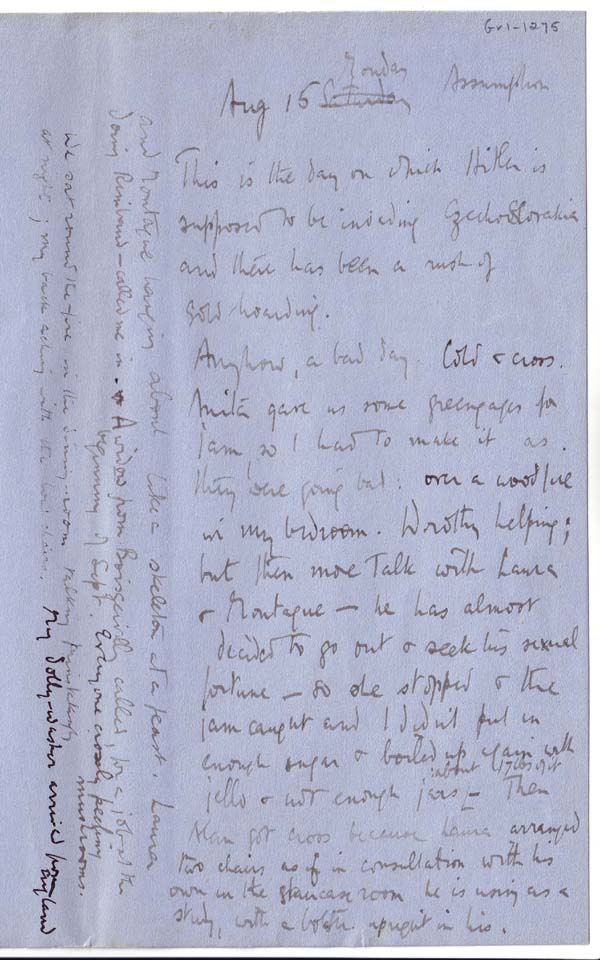 Gr1-1275
Monday
Aug 15 Saturday Assumption
This is the day on which Hitler is
supposed to be invading CzechoSlovakia
and there has been a rush of
gold hoarding.
Anyhow, a bad day. Cold & cross.
gave us some greengages for
jam so I had to make it as
they were going bad: over a wood fire
in my bedroom. Dorothy helping;
but then more Talk with Laura
& Montague – he has almost
decided to go out & seek his sexual
fortune – so she stopped & the
jam caught and I didn't put in
enough sugar & boiled up again with
about 17 lbs of it
jello & not enough jars – Then
Alan got cross because Laura arranged
two chairs as if in consultation with his
own in the staircase room he is using as a
study, with a bolster upright in his.
and Montague hanging about like a skeleton at a feast. Laura
doing Rimbaud – called me in. A widow from called for a job at the
beginning of Sept. Everyone crossly peeling
mushrooms.
We sat round the fire in the dining-room talking
at night; my back aching with the hard chairs. My Dolly-washer arrived from England